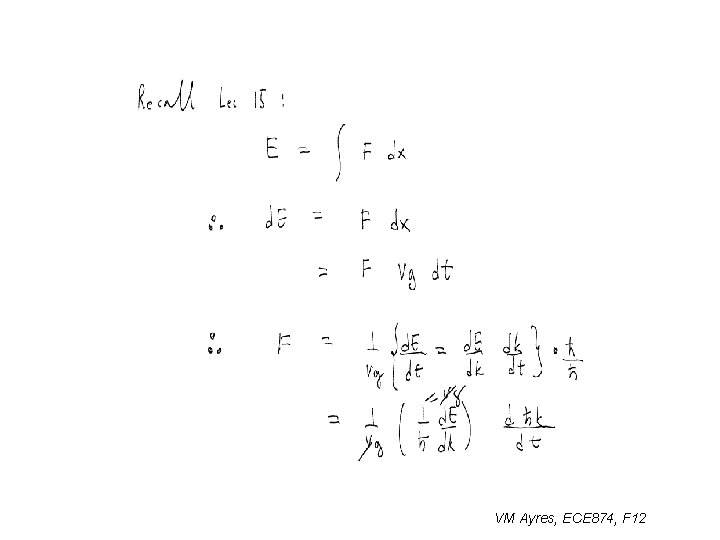 Recall Lec 15 :
E = ∫ F dx
∴ dE = F dx
= F vg dt
∴ F = 1/vg { dE/dt = dE/dk dk/dt } · ħ/ħ
= vg
= 1/vg ( 1/ħ dE/dk ) d ħk/dt
VM Ayres, ECE874, F12